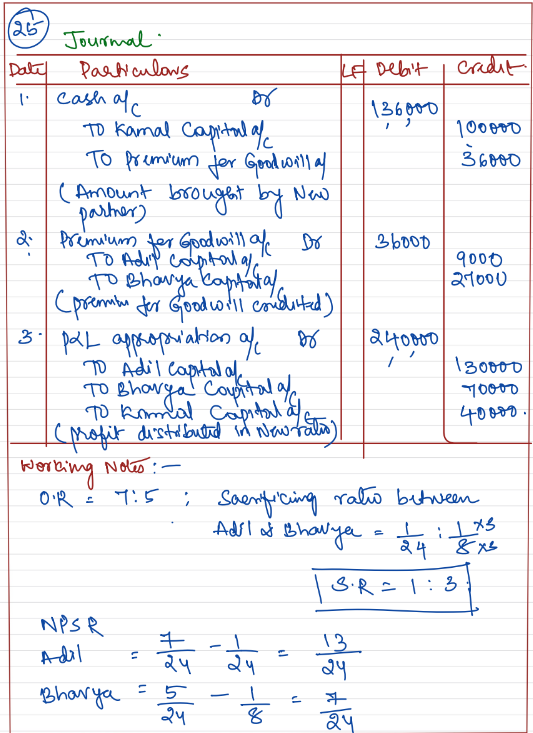 25
Journal.
Date Particulars LF Debit Credit
1. Cash a/c Dr 136000
To Kamal Capital a/c 100000
To Premium for Goodwill a/c 36000
(Amount brought by New
partner)
2. Premium for Goodwill a/c Dr 36000
To Adil capital a/c 9000
To Bhavya Capital a/c 27000
(premium for Goodwill credited)
3. P&L appropriation a/c Dr 240000
To Adil Capital a/c 130000
To Bhavya Capital a/c 70000
To Kamal Capital a/c 40000.
(profit distributed in New ratio)
Working Notes:—
O.R = 7:5 ; Sacrificing ratio between
Adil & Bhavya = 1/24 : 1/8 ×3/×3
S.R = 1 : 3
NPSR
Adil = 7/24 - 1/24 = 13/24
Bhavya = 5/24 - 1/8 = 7/24